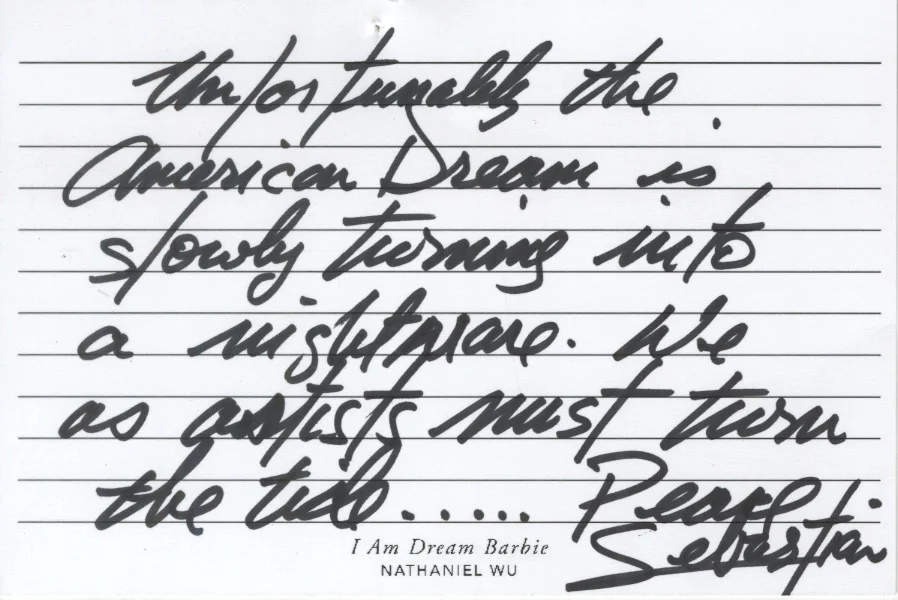 Unfortunately the
American Dream is
slowly turning into
a nightmare. We
as artists must turn
the tide..... Peace
Sebastian
I Am Dream Barbie
NATHANIEL WU